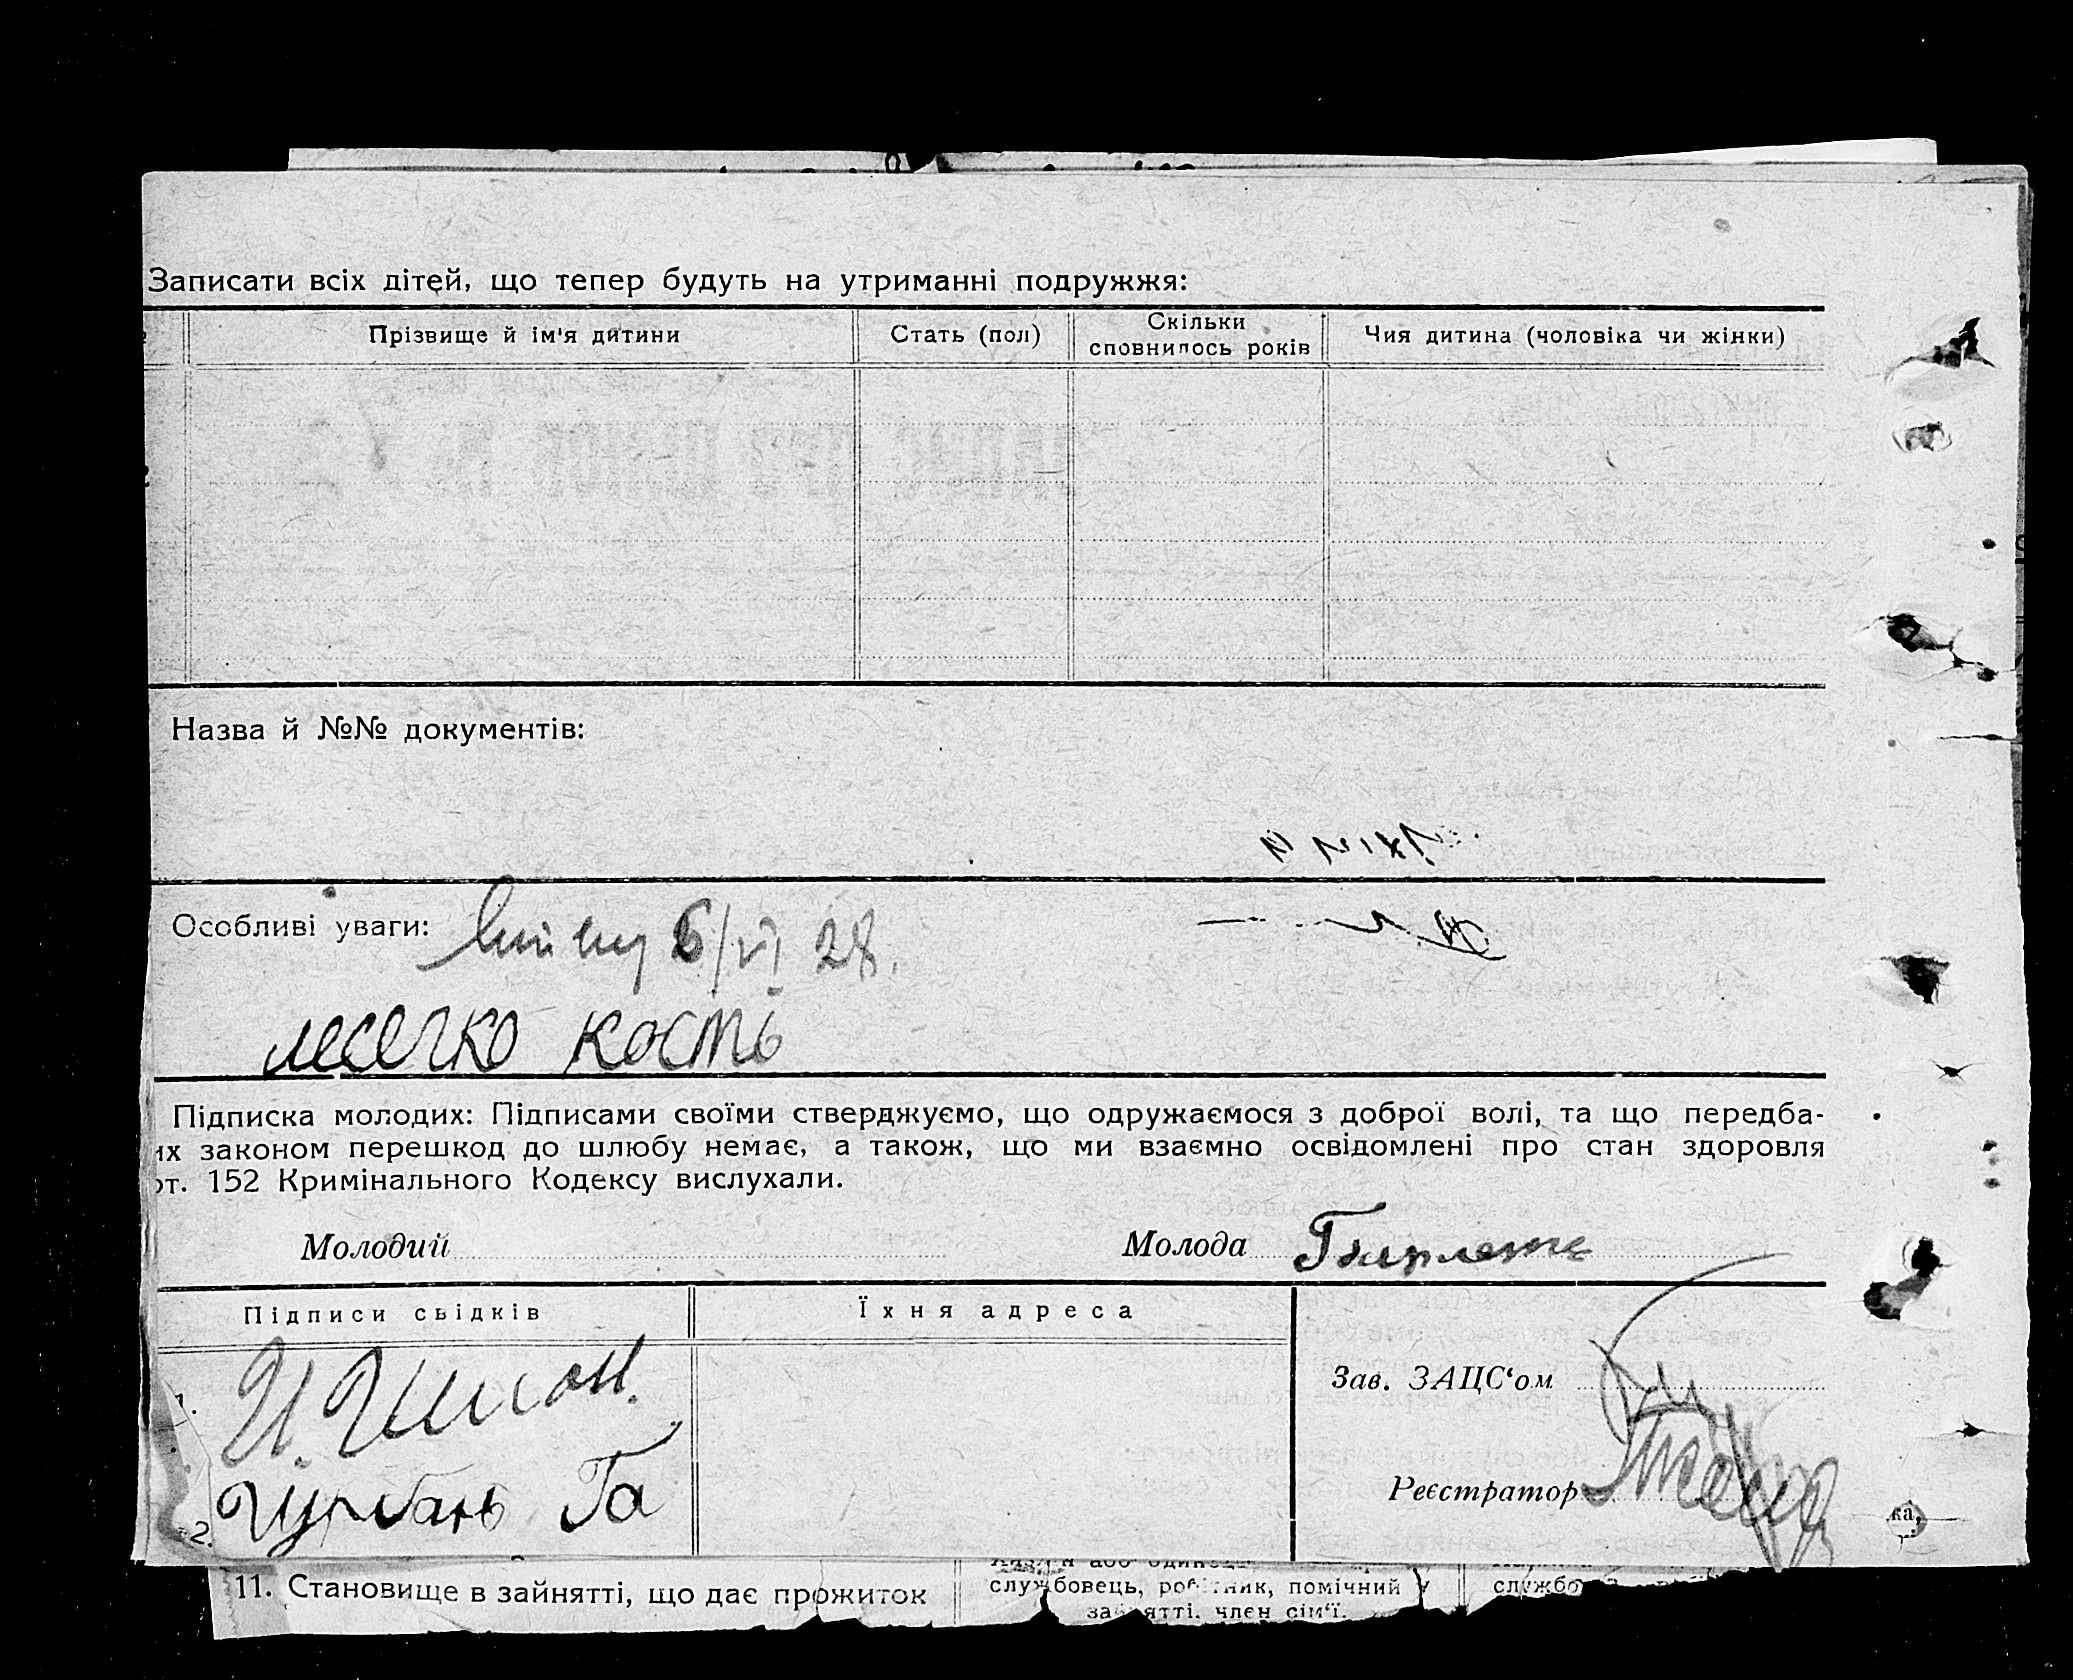 Записати всіх дітей, що тепер будуть на утриманні подружжя:
Прізвище й ім'я дитини
Стать (пол)
Скільки сповнилось років
Чия дитина (чоловіка чи жінки)
Назва й №№ документів:
Особливі уваги: 6/VI 28.
кость
Підписка молодих: Підписами своїми стверджуємо, що одружаємося з доброї волі, та що передба-
их законом перешкод до шлюбу немає, а також, що ми взаємно освідомлені про стан здоровля
от. 152 Кримінального Кодексу вислухали.
Молодий
Молода
Підписи свідків
Їхня адреса
1.
2.
Зав. ЗАЦС'ом
Реєстратор
ка,
11. Становище в зайнятті, що дає прожиток
службовець, робітник, помічний у
зайнятті, член сім'ї.
службо